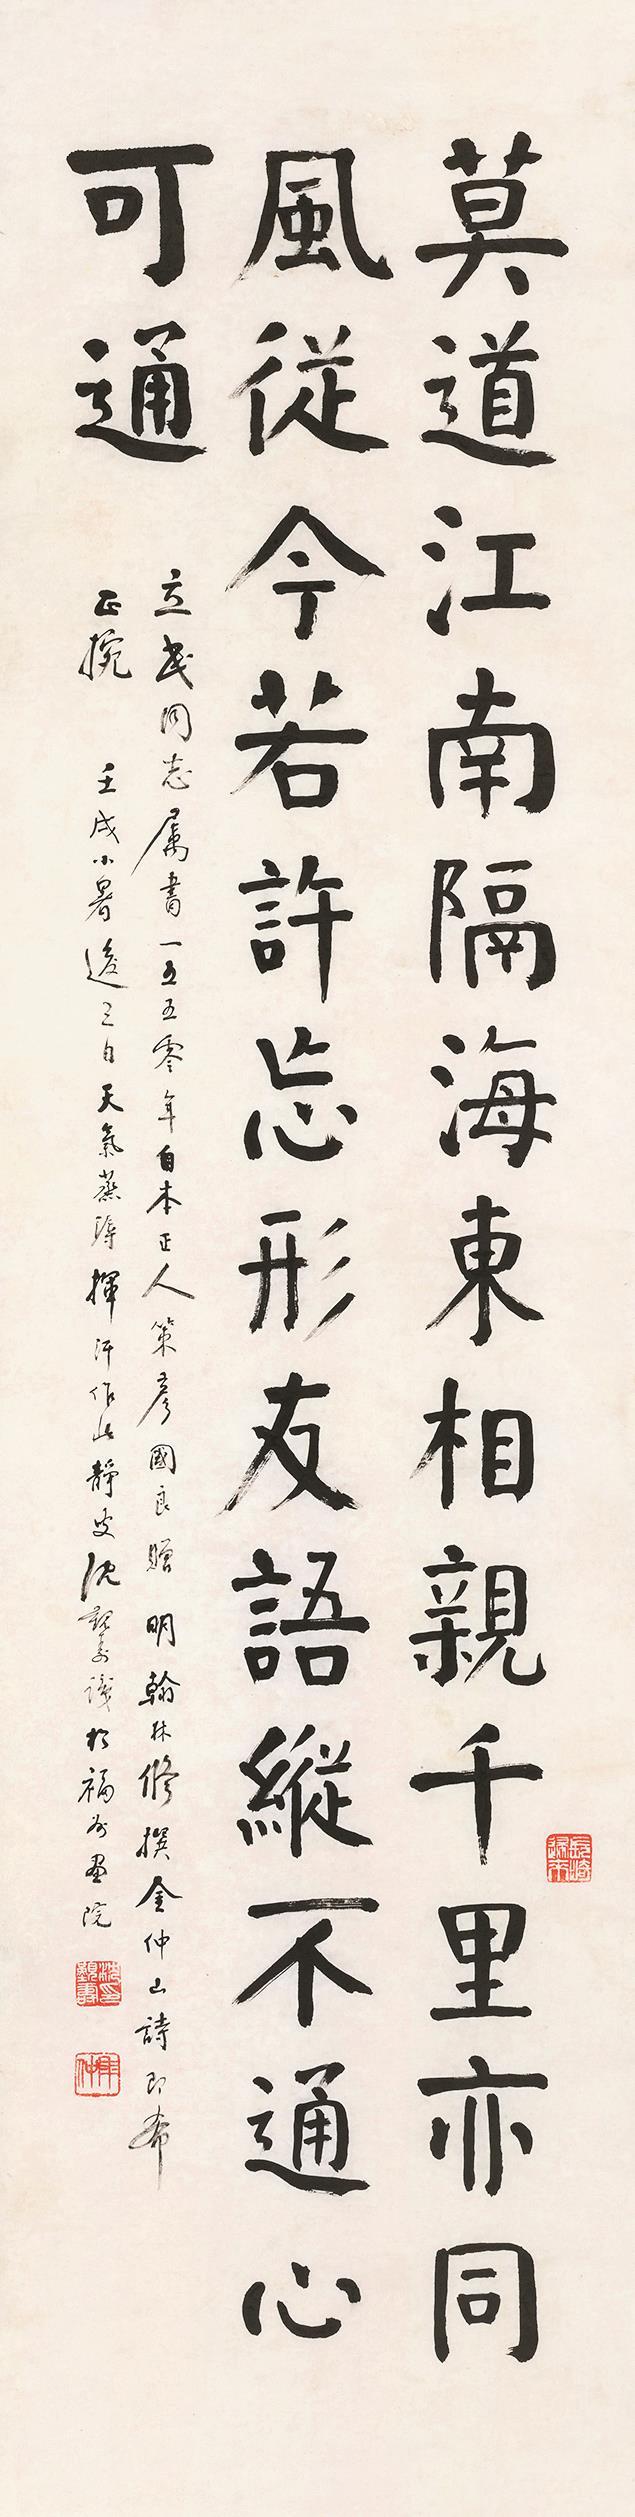 莫道江南隔海東相親千里亦同
風從今若許忘形友語縱不通心
可通
立民同志屬書一五五零年日本正人策彥國良贈明翰林修撰金仲山詩即希
正捥 壬戌小暑後三日天氣蒸溽揮汗作此靜叟沈覲壽識於福州畫院
沈覲壽印